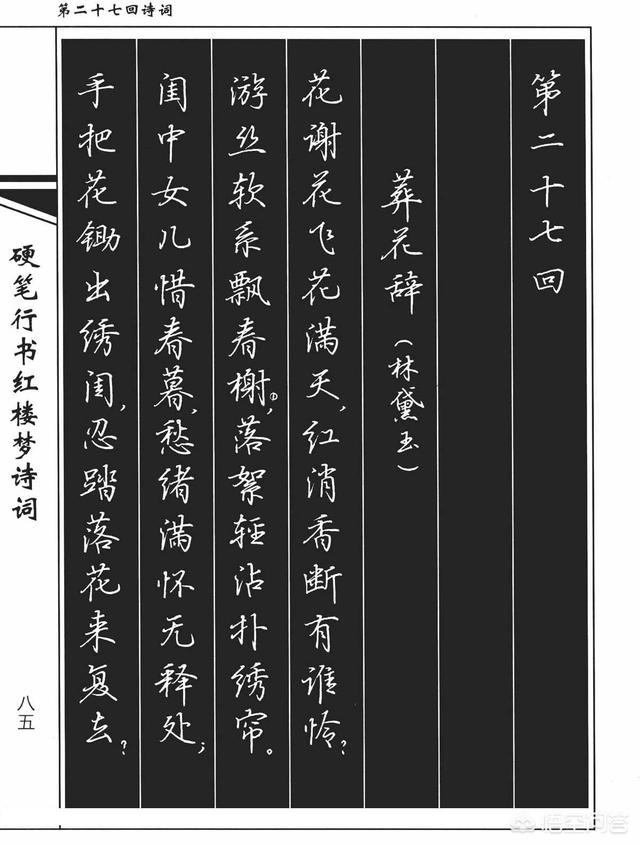 第二十七回诗词
第二十七回
葬花辞（林黛玉）
花谢花飞花满天，红消香断有谁怜？
游丝软系飘春榭②，落絮轻沾扑绣帘。
闺中女儿惜春暮，愁绪满怀无释处；
手把花锄出绣闺，忍踏落花来复去？
硬笔行书红楼梦诗词
八五
悟空问答